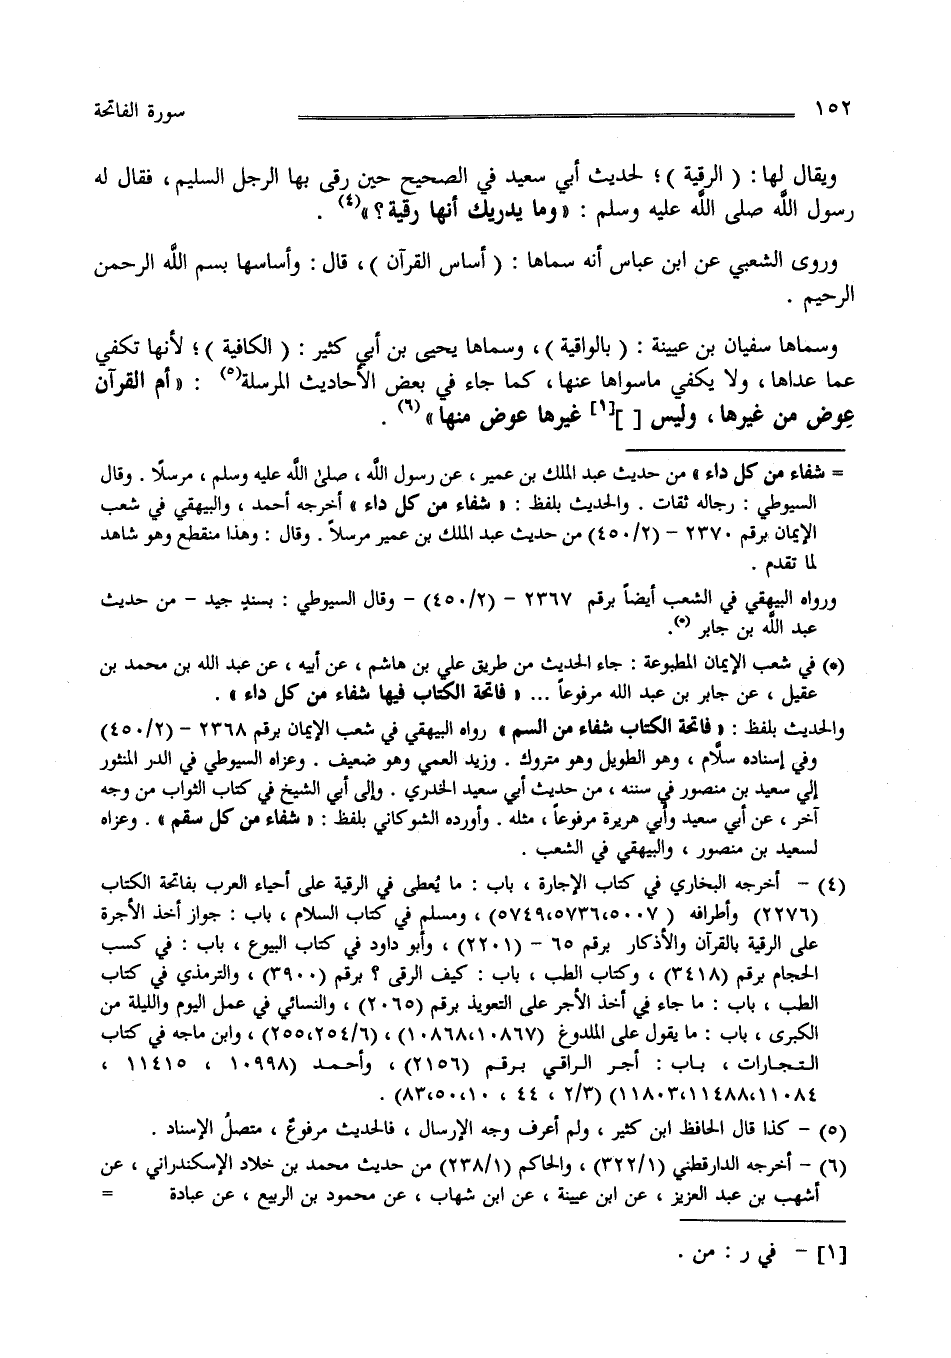 ١٥٢ سورة الفاتحة
ويقال لها : ( الرقية ) ؛ لحديث أبي سعيد في الصحيح حين رقى بها الرجل السليم ، فقال له
رسول اللَّه صلى اللَّه عليه وسلم : « وما يدريك أنها رقية ؟ »(٤) .
وروى الشعبي عن ابن عباس أنه سماها : ( أساس القرآن ) ، قال : وأساسها بسم اللَّه الرحمن
الرحيم .
وسماها سفيان بن عيينة : ( بالواقية ) ، وسماها يحيى بن أبي كثير : ( الكافية ) ؛ لأنها تكفي
عما عداها ، ولا يكفي ماسواها عنها ، كما جاء في بعض الأحاديث المرسلة(٥) : « أم القرآن
عِوض من غيرها ، وليس [ ][١] غيرها عوض منها »(٦) .
= شفاء من كل داء » من حديث عبد الملك بن عمير ، عن رسول اللَّه ، صلىٰ اللَّه عليه وسلم ، مرسلًا . وقال
السيوطي : رجاله ثقات . والحديث بلفظ : « شفاء من كل داء » أخرجه أحمد ، والبيهقي في شعب
الإيمان برقم ٢٣٧٠ - (٢/٤٥٠) من حديث عبد الملك بن عمير مرسلاً . وقال : وهذا منقطع وهو شاهد
لما تقدم .
ورواه البيهقي في الشعب أيضاً برقم ٢٣٦٧ - (٢/٤٥٠) - وقال السيوطي : بسندٍ جيد - من حديث
عبد اللَّه بن جابر (*).
(*) في شعب الإيمان المطبوعة : جاء الحديث من طريق علي بن هاشم ، عن أبيه ، عن عبد الله بن محمد بن
عقيل ، عن جابر بن عبد الله مرفوعاً ... « فاتحة الكتاب فيها شفاء من كل داء » .
والحديث بلفظ : « فاتحة الكتاب شفاء من السم » رواه البيهقي في شعب الإيمان برقم ٢٣٦٨ - (٢/٤٥٠)
وفي إسناده سلَّام ، وهو الطويل وهو متروك . وزيد العمي وهو ضعيف . وعزاه السيوطي في الدر المنثور
إلي سعيد بن منصور في سننه ، من حديث أبي سعيد الخدري . وإلى أبي الشيخ في كتاب الثواب من وجه
آخر ، عن أبي سعيد وأبي هريرة مرفوعاً ، مثله . وأورده الشوكاني بلفظ : « شفاء من كل سقم » . وعزاه
لسعيد بن منصور ، والبيهقي في الشعب .
(٤) - أخرجه البخاري في كتاب الإجارة ، باب : ما يُعطى في الرقية على أحياء العرب بفاتحة الكتاب
(٢٢٧٦) وأطرافه ( ٥٠٠٧،٥٧٣٦،٥٧٤٩) ، ومسلم في كتاب السلام ، باب : جواز أخذ الأجرة
على الرقية بالقرآن والأذكار برقم ٦٥ - (٢٢٠١) ، وأبو داود في كتاب البيوع ، باب : في كسب
الحجام برقم (٣٤١٨) ، وكتاب الطب ، باب : كيف الرقى ؟ برقم (٣٩٠٠) ، والترمذي في كتاب
الطب ، باب : ما جاء في أخذ الأجر على التعويذ برقم (٢٠٦٥) ، والنسائي في عمل اليوم والليلة من
الكبرى ، باب : ما يقول على الملدوغ (١٠٨٦٧،١٠٨٦٨) ، (٦/٢٥٤،٢٥٥) ، وابن ماجه في كتاب
التجارات ، باب : أجر الراقي برقم (٢١٥٦) ، وأحمد (١٠٩٩٨ ، ١١٤١٥ ،
١١٠٨٤،١١٤٨٨،١١٨٠٣) (٣/٢ ، ٤٤ ، ١٠،٥٠،٨٣) .
(٥) - كذا قال الحافظ ابن كثير ، ولم أعرف وجه الإرسال ، فالحديث مرفوعٌ ، متصلُ الإسناد .
(٦) - أخرجه الدارقطني (١/٣٢٢) ، والحاكم (١/٢٣٨) من حديث محمد بن خلاد الإسكندراني ، عن
أشهب بن عبد العزيز ، عن ابن عيينة ، عن ابن شهاب ، عن محمود بن الربيع ، عن عبادة =
[١] - في ر : من .